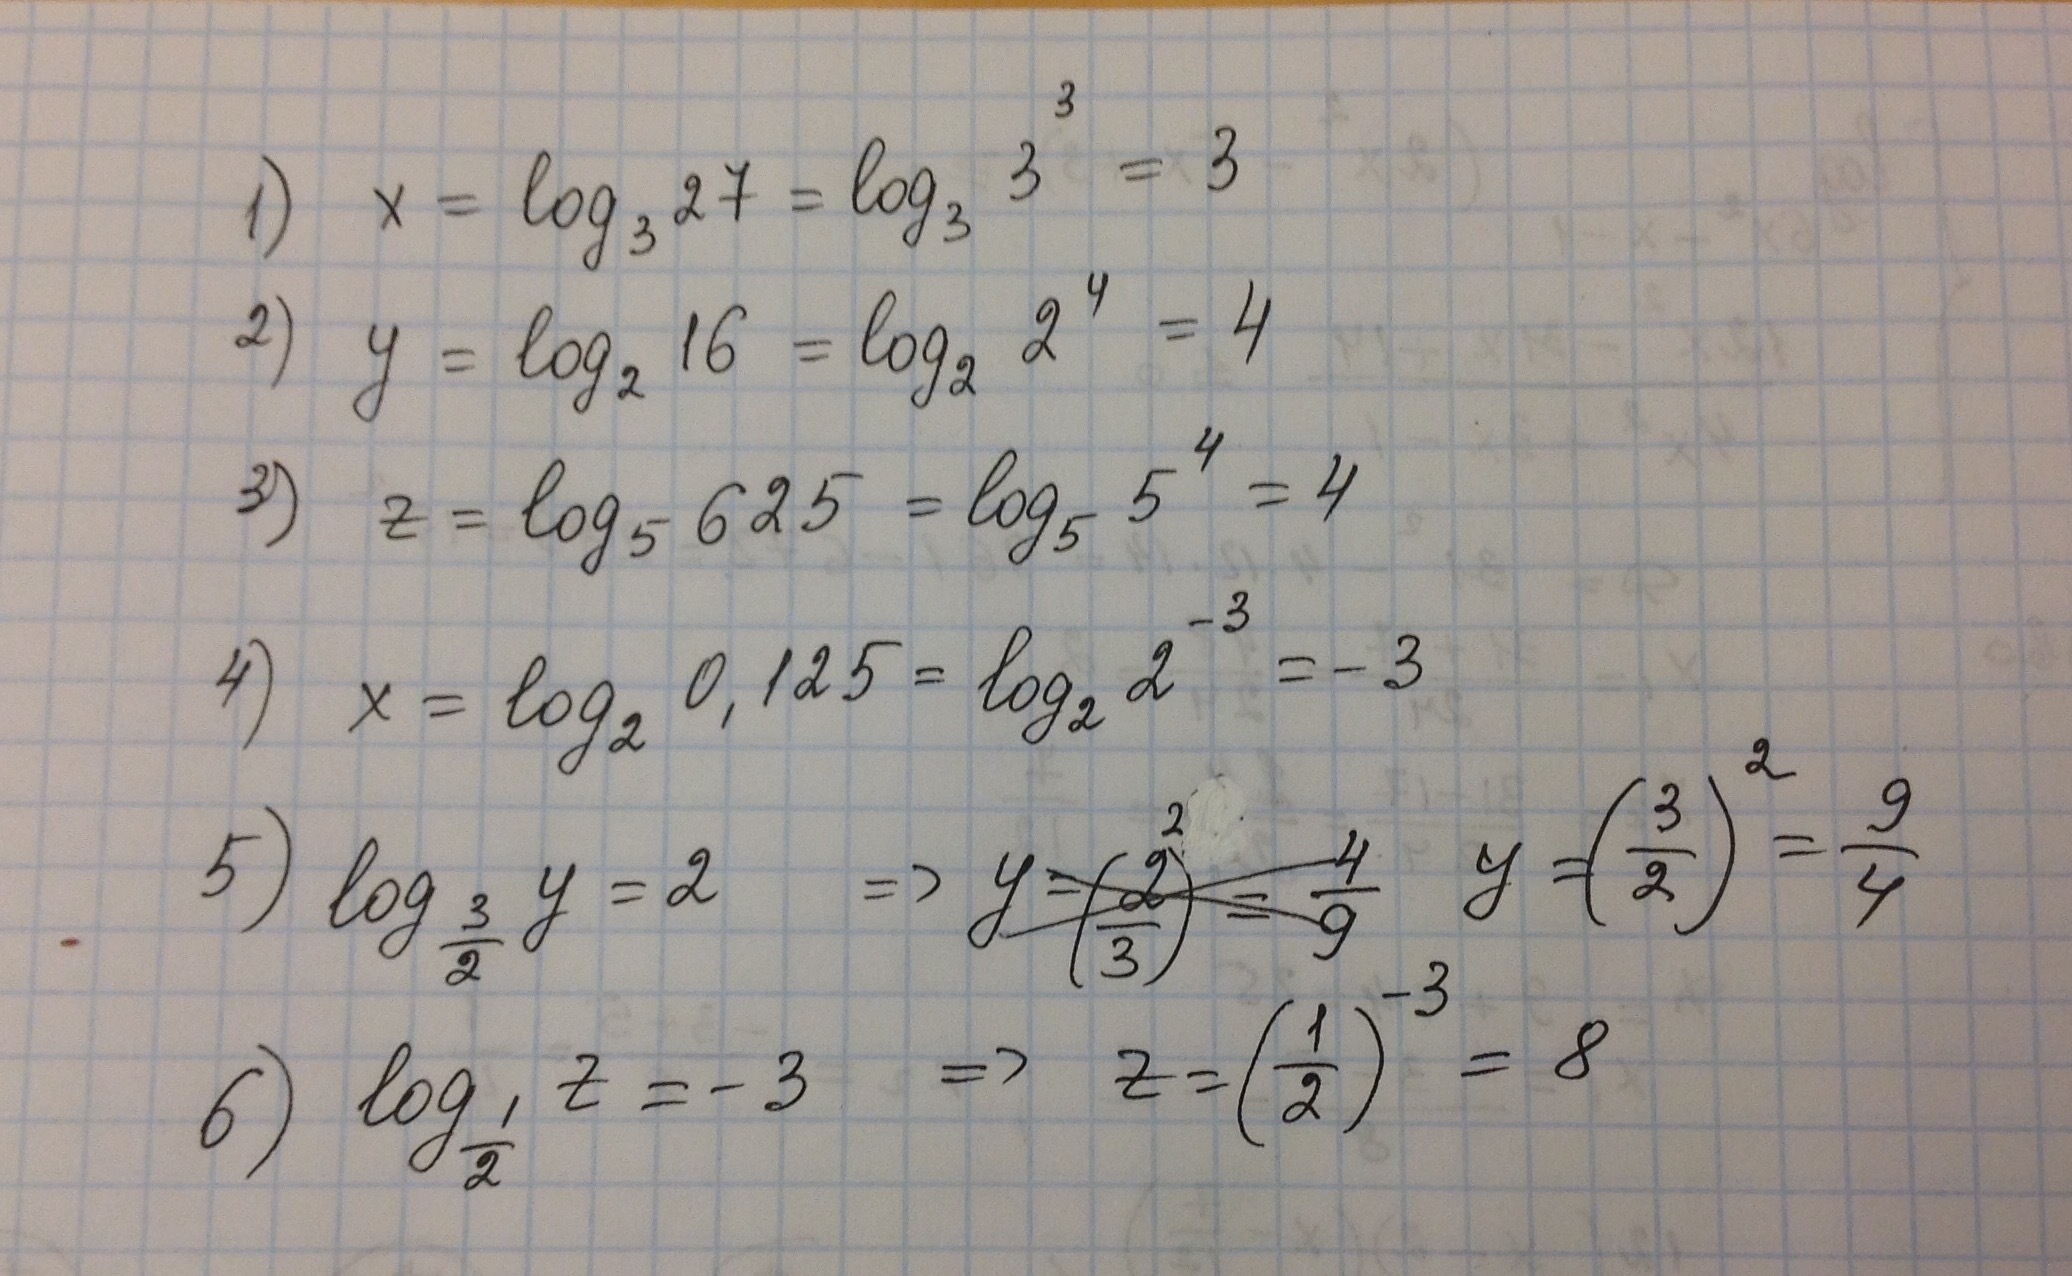 1) x = log₃ 27 = log₃ 3³ = 3
2) y = log₂ 16 = log₂ 2⁴ = 4
3) z = log₅ 625 = log₅ 5⁴ = 4
4) x = log₂ 0,125 = log₂ 2⁻³ = -3
5) log_(3/2) y = 2 => y = (2/3)² = 4/9 y = (3/2)² = 9/4
6) log_(1/2) z = -3 => z = (1/2)⁻³ = 8